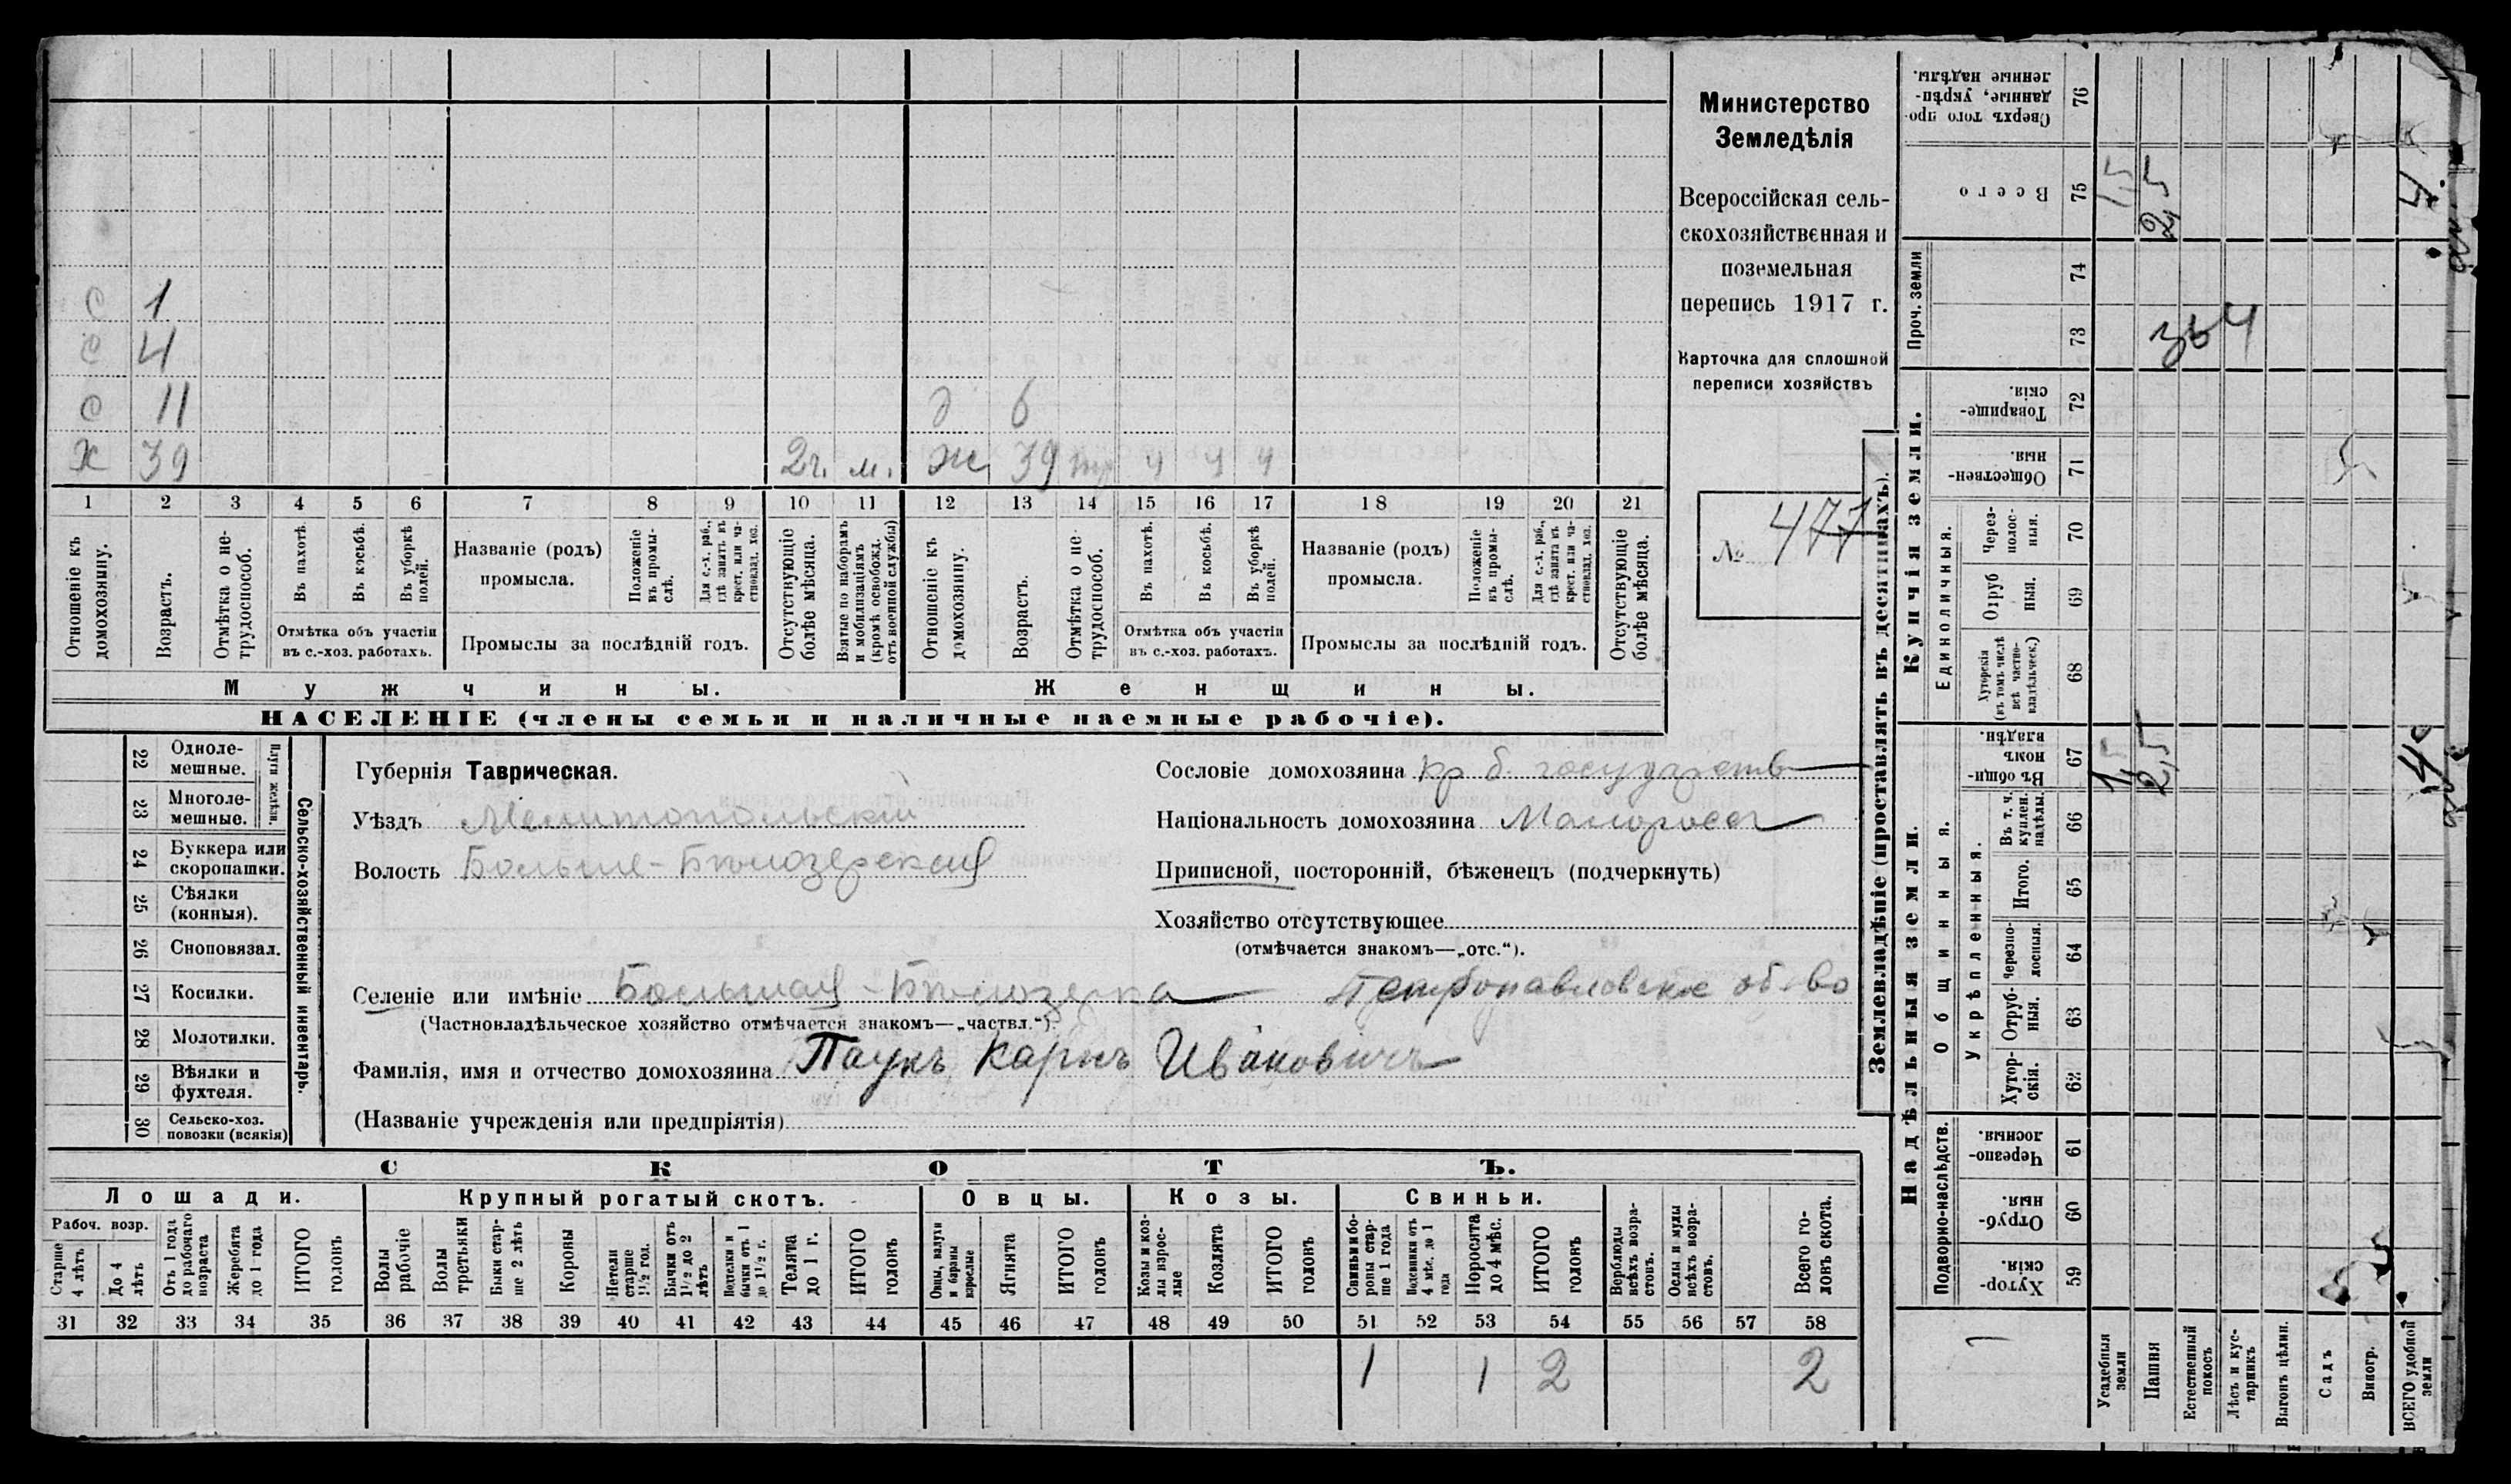 Министерство
Земледѣлія
Всероссійская сель-
скохозяйственная и
поземельная
перепись 1917 г.
Карточка для сплошной
переписи хозяйствъ
№ 477
С 1
С 4
С 11 д 6
Х 39 2 г. м. Ж 39 ч ч ч
1 2 3 4 5 6 7 8 9 10 11 12 13 14 15 16 17 18 19 20 21
Отношеніе къ домохозяину.
Возрастъ.
Отмѣтка о не-трудоспособ.
Въ пахотѣ.
Въ косьбѣ.
Въ уборкѣ полей.
Отмѣтка объ участіи
въ с.-хоз. работахъ.
Названіе (родъ)
промысла.
Положеніе въ промы-слѣ.
Для с.-х. раб., гдѣ занятъ въ крест. или ча-стновлад. хоз.
Промыслы за послѣдній годъ.
Отсутствующіе болѣе мѣсяца.
Взятые по наборамъ и мобилизаціямъ (кромѣ освобожд. отъ военной службы)
Отношеніе къ домохозяину.
Возрастъ.
Отмѣтка о не-трудоспособ.
Въ пахотѣ.
Въ косьбѣ.
Въ уборкѣ полей.
Отмѣтка объ участіи
въ с.-хоз. работахъ.
Названіе (родъ)
промысла.
Положеніе въ промы-слѣ.
Для с.-х. раб., гдѣ занята въ крест. или ча-стновлад. хоз.
Промыслы за послѣдній годъ.
Отсутствующіе болѣе мѣсяца.
Мужчины.
Женщины.
НАСЕЛЕНІЕ (члены семьи и наличные наемные рабочіе).
22 Одноле-мешные.
23 Многоле-мешные.
Плуги желѣзн.
24 Буккера или скоропашки.
25 Сѣялки (конныя).
26 Сноповязал.
27 Косилки.
28 Молотилки.
29 Вѣялки и фухтеля.
30 Сельско-хоз. повозки (всякія)
Сельско-хозяйственный инвентарь.
Губернія Таврическая.
Уѣздъ Мелитопольскій
Волость Больше-Бѣлозерская
Сословіе домохозяина кр б. государств
Національность домохозяина Малоросс
Приписной, посторонній, бѣженецъ (подчеркнуть)
Хозяйство отсутствующее
(отмѣчается знакомъ—„отс.“).
Селеніе или имѣніе Большая-Бѣлозерка Петропавловское об-во
(Частновладѣльческое хозяйство отмѣчается знакомъ—„частвл.“).
Фамилія, имя и отчество домохозяина Паукъ Карпъ Ивановичъ
(Названіе учрежденія или предпріятія)
СКОТЪ.
Лошади. Крупный рогатый скотъ. Овцы. Козы. Свиньи.
Рабоч. возр.
Старше 4 лѣтъ
До 4 лѣтъ
Отъ 1 года до рабочаго возраста
Жеребята до 1 года
ИТОГО головъ
Волы рабочіе
Волы третьяки
Быки стар-ше 2 лѣтъ
Коровы
Нетели старше 1½ год.
Бычки отъ 1½ до 2 лѣтъ
Подтелки и бычки отъ 1 до 1½ г.
Телята до 1 г.
ИТОГО головъ
Овцы, валухи и бараны взрослые
Ягнята
ИТОГО головъ
Козы и коз-лы взрос-лые
Козлята
ИТОГО головъ
Свиньи и бо-ровы стар-ше 1 года
Подсвинки отъ 4 мѣс. до 1 года
Поросята до 4 мѣс.
ИТОГО головъ
Верблюды всѣхъ возра-стовъ.
Ослы и мулы всѣхъ возра-стовъ.
Всего го-ловъ скота.
31 32 33 34 35 36 37 38 39 40 41 42 43 44 45 46 47 48 49 50 51 52 53 54 55 56 57 58
1 1 2 2
Землевладѣніе (проставлять въ десятинахъ).
Надѣльныя земли.
Купчія земли.
Проч. земли
Подворно-наслѣдств.
Общинныя.
Укрѣпленныя.
Единоличныя.
Сверхъ того про-данные, укрѣп-ленные надѣлы. 76
Всего 75 1,5 2,5 4
74
73
Товарище-скія. 72
Обществен-ныя. 71
Через-полос-ныя. 70
Отруб ныя. 69
Хуторскія (въ томъ числѣ всѣ частно-владѣльческ.) 68
Въ общи-номъ владѣн. 67 1,5 2,5 4
Въ т. ч. куплен. надѣлы. 66
Итого. 65
Черезпо-лосныя. 64
Отруб-ныя. 63
Хутор-скія. 62
Черезпо-лосныя. 61
Отруб-ныя. 60
Хутор-скія. 59
Усадебныя земли
Пашня
Естественный покосъ
Лѣсъ и кус-тарникъ
Выгонъ цѣлин.
Садъ
Виногр.
ВСЕГО удобной земли